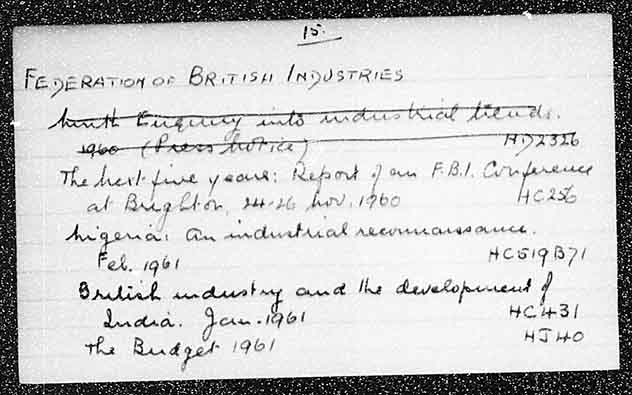 15.
FEDERATION OF BRITISH INDUSTRIES
Ninth Enquiry into industrial trends.
1960 (Press Notice) HD2326
The next five years: Report of an F.B.I. Conference
at Brighton, 24-26 Nov. 1960 HC256
Nigeria: an industrial reconnaissance.
Feb. 1961 HC519B71
British industry and the development of
India. Jan. 1961 HC431
The Budget 1961 HJ40